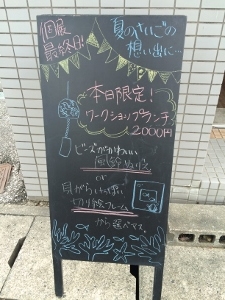 個展
最終日!
夏のさいごの
想い出に…
本日限定!
ワークショップランチ
2000円
ビーズがかわいい
風鈴
or
貝がらいっぱい
フレーム
から選べマス。